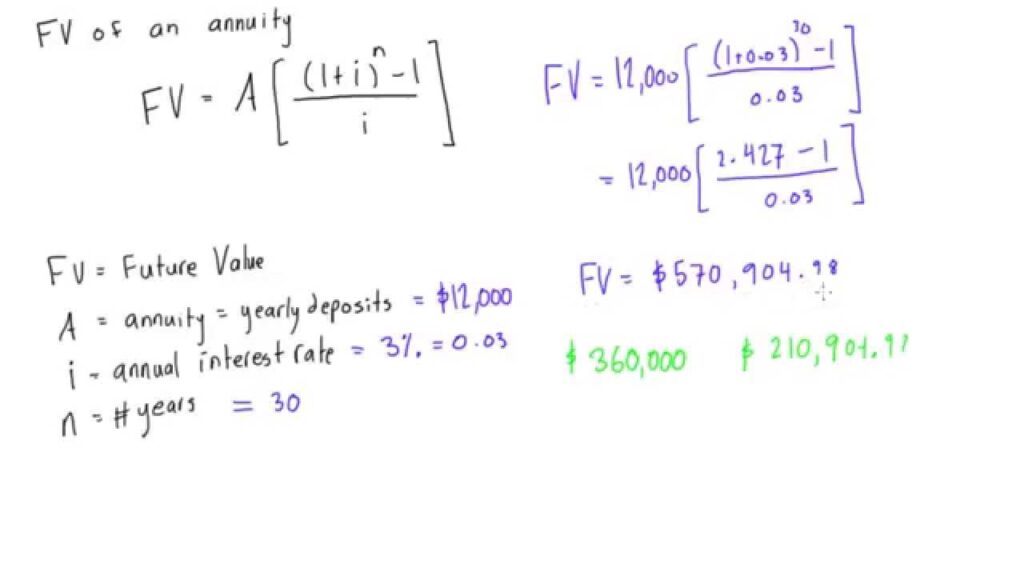 FV of an annuity
FV = A[((1+i)^n -1)/i]
FV = Future Value
A = annuity = yearly deposits = $12,000
i - annual interest rate = 3% = 0.03
n = # years = 30
FV = 12,000[((1+0.03)^30 -1)/0.03]
= 12,000[(2.427 -1)/0.03]
FV = $570,904.98
$360,000 $210,904.97